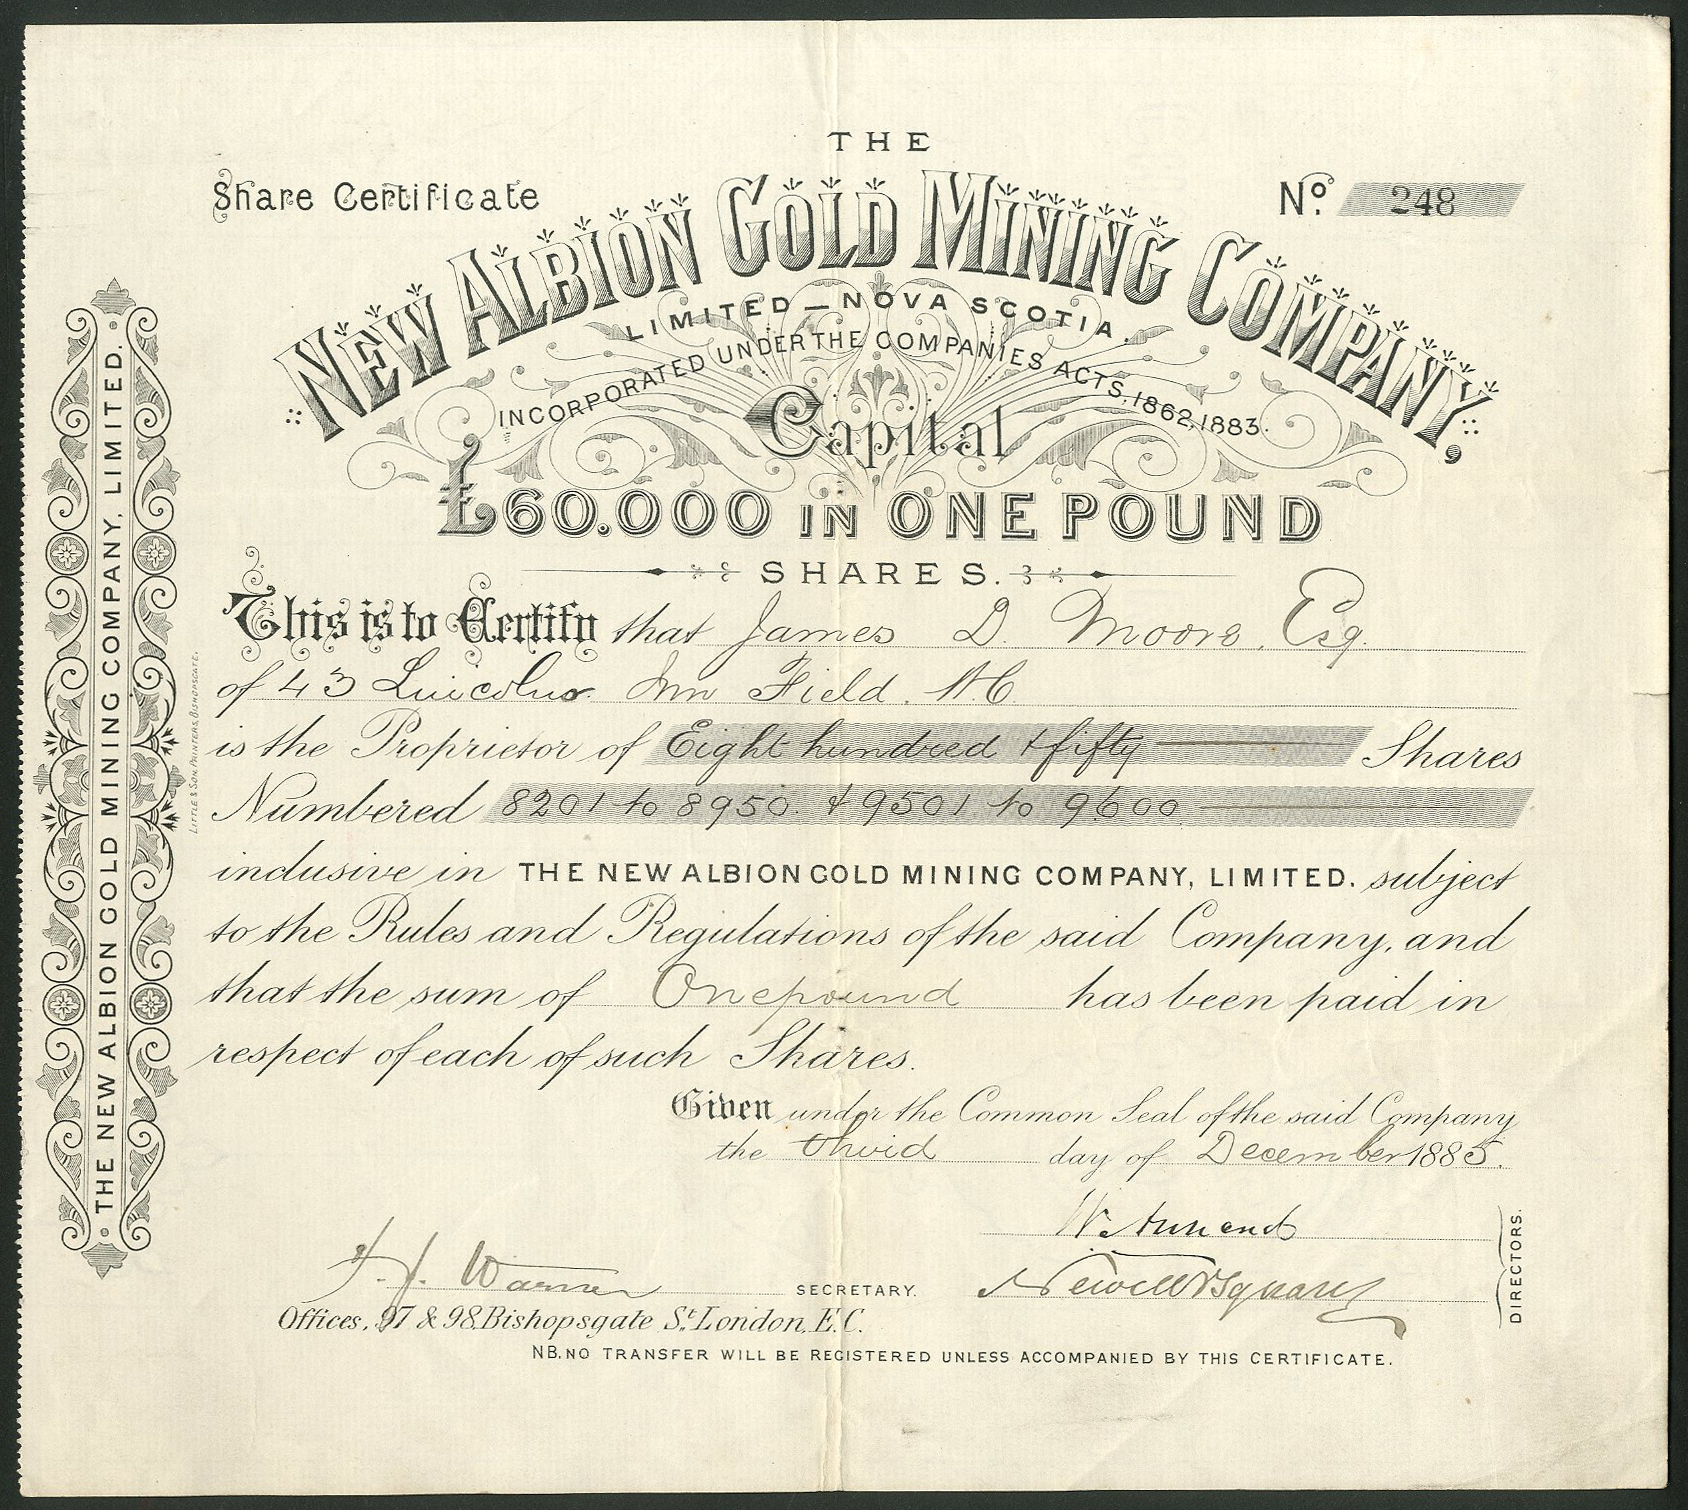 THE
Share Certificate
Nº. 248
NEW ALBION GOLD MINING COMPANY,
LIMITED — NOVA SCOTIA.
INCORPORATED UNDER THE COMPANIES ACTS, 1862, 1883.
Capital
£60.000 IN ONE POUND
SHARES.
This is to Certify that James D. Moore, Esq.
of 43 Lincolns Inn Field. W.C.
is the Proprietor of Eight hundred & fifty Shares
Numbered 8201 to 8950. & 9501 to 9600
inclusive in THE NEW ALBION GOLD MINING COMPANY, LIMITED. subject
to the Rules and Regulations of the said Company, and
that the sum of One pound has been paid in
respect of each of such Shares.
Given under the Common Seal of the said Company
the third day of December 1885.
W. Annand
F. J. Warner SECRETARY.
DIRECTORS.
Offices, 97 & 98, Bishopsgate St. London, E.C.
NB. NO TRANSFER WILL BE REGISTERED UNLESS ACCOMPANIED BY THIS CERTIFICATE.
THE NEW ALBION GOLD MINING COMPANY, LIMITED.
LITTLE & SON, PRINTERS, BISHOPSGATE.